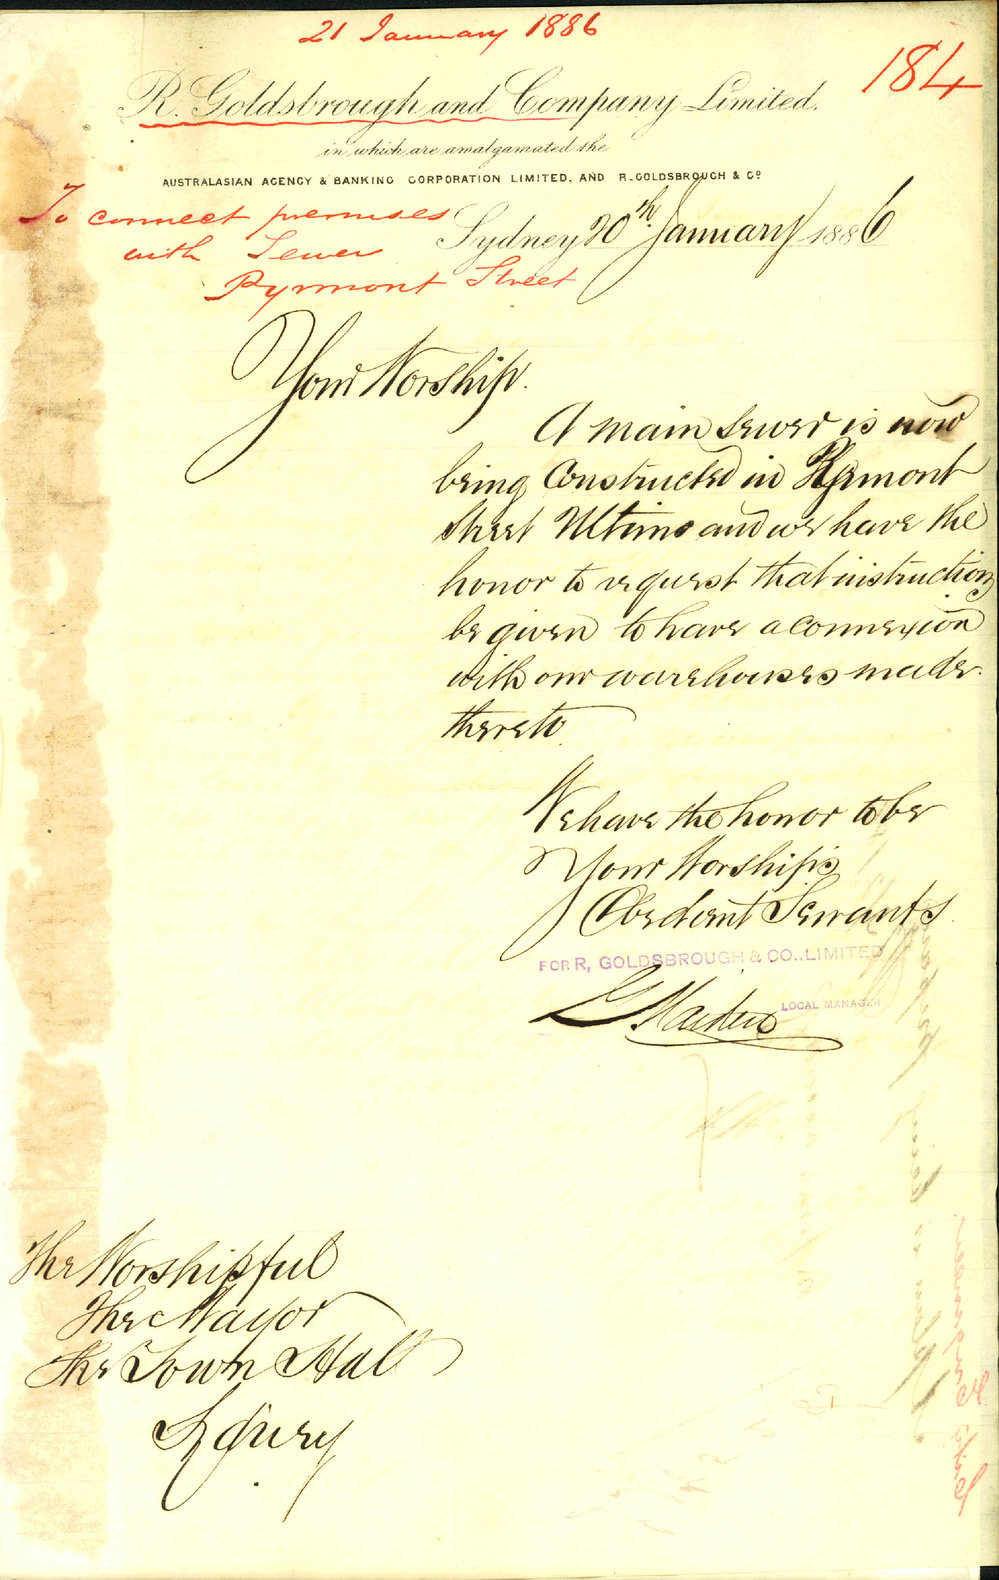 21 January 1886
184
R. Goldsbrough and Company Limited.
in which are amalgamated the
AUSTRALASIAN AGENCY & BANKING CORPORATION LIMITED, AND R. GOLDSBROUGH & Co
To connect premises
with Sewer
Pyrmont Street
Sydney 20th January 1886
Your Worship.
A main sewer is now
being Constructed in Pyrmont
Street Ultimo and we have the
honor to request that instructions
be given to have a connexion
with our warehouses made
thereto
We have the honor to be
Your Worship's
Obedient Servants.
FOR R, GOLDSBROUGH & CO.. LIMITED
LOCAL MANAGER
The Worshipful
The Mayor
The Town Hall
Sydney